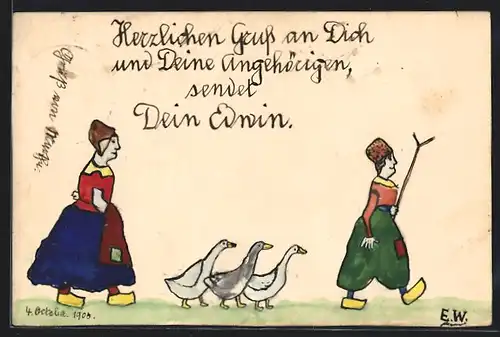 Herzlichen Gruß an Dich
und Deine Angehörigen,
sendet
Dein Edwin.
Gruß von
4. October 1900.
E.W.